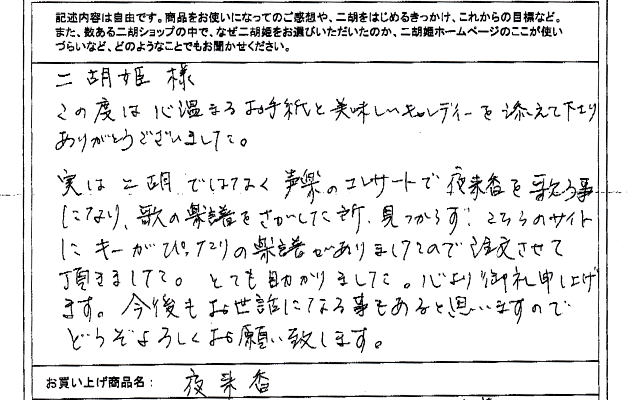 記述内容は自由です。商品をお使いになってのご感想や、二胡をはじめるきっかけ、これからの目標など。
また、数ある二胡ショップの中で、なぜ二胡姫をお選びいただいたのか、二胡姫ホームページのここが使い
づらいなど、どのようなことでもお聞かせください。
二胡姫 様
この度は心温まるお手紙と美味しいキャンディーを添えて下さり
ありがとうございました。
実は二胡ではなく声楽のコンサートで夜来香を歌う事
になり、歌の楽譜をさがした所、見つからず、こちらのサイト
にキーがぴったりの楽譜がありましたので注文させて
頂きました。とても助かりました。心より御礼申上げ
ます。今後もお世話になる事もあると思いますので
どうぞよろしくお願い致します。
お買い上げ商品名： 夜来香